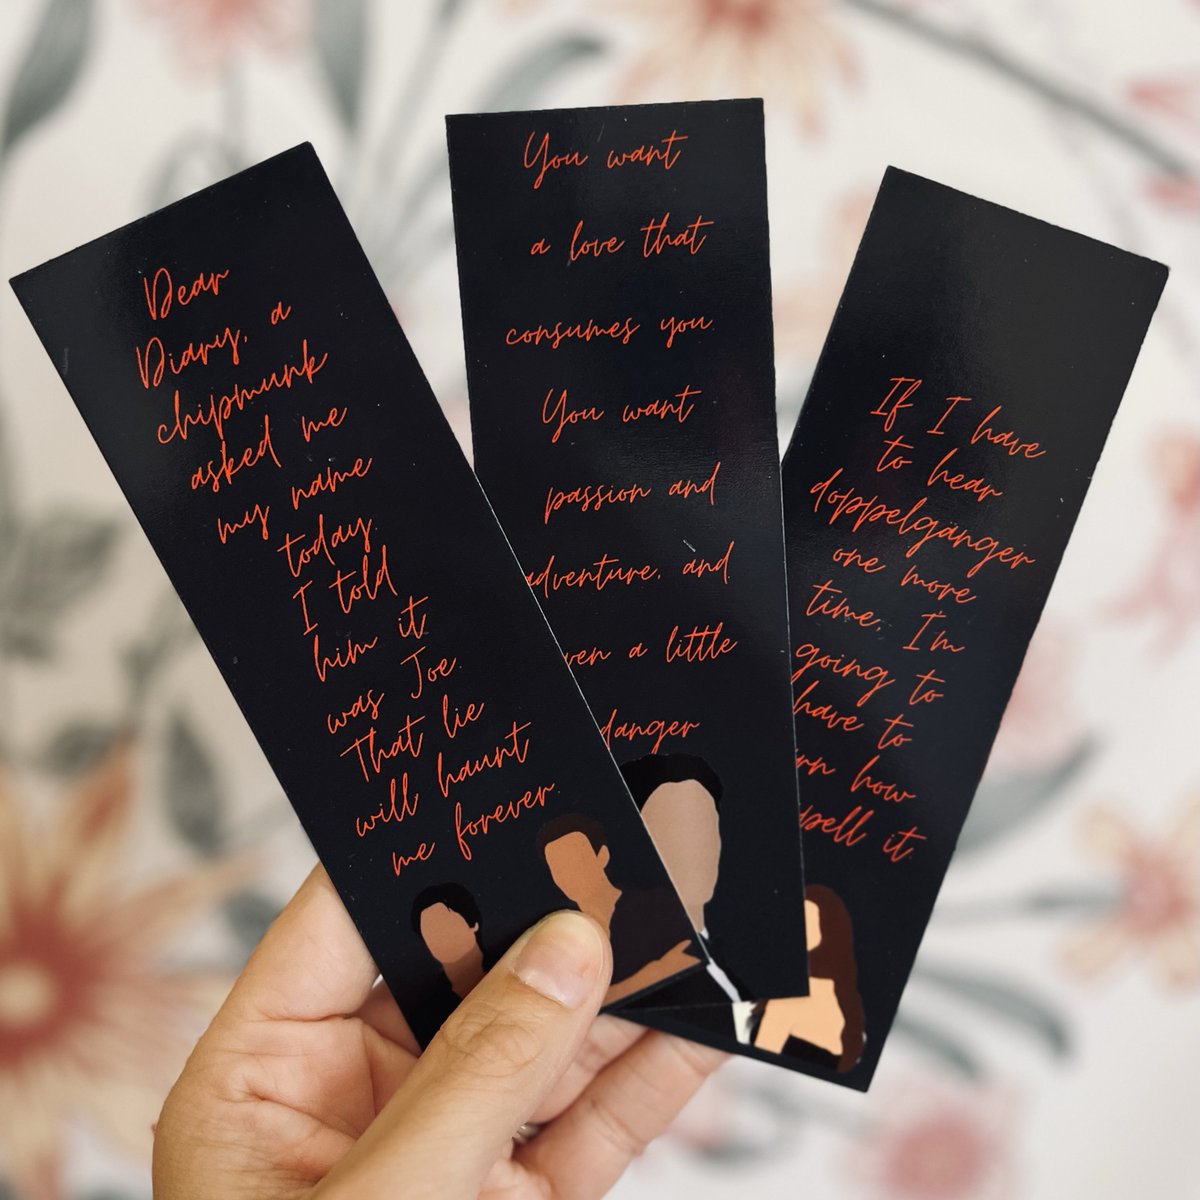 Dear
Diary, a
chipmunk
asked me
my name
today.
I told
him it
was Joe.
That lie
will haunt
me forever.
You want
a love that
consumes you.
You want
passion and
adventure, and
a little
danger
If I have
to hear
doppelganger
one more
time, I'm
going to
have to
how
it.